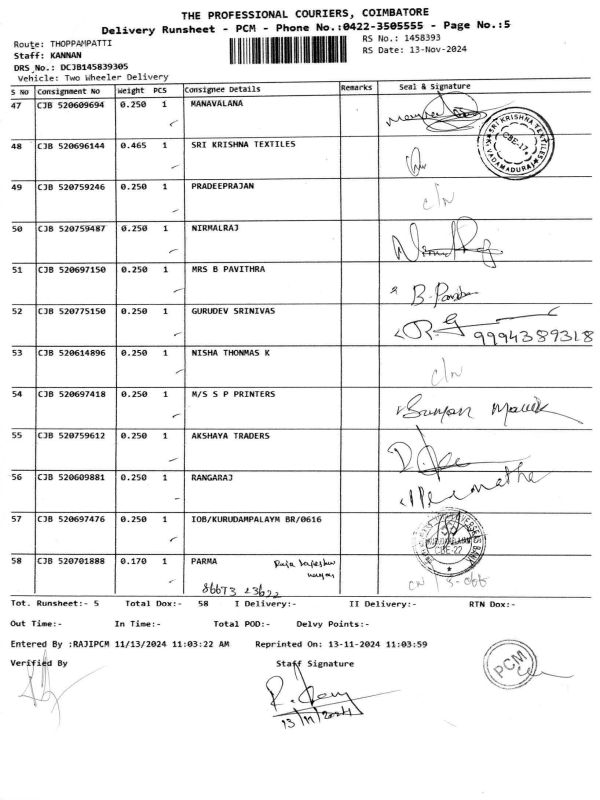 THE PROFESSIONAL COURIERS, COIMBATORE
Delivery Runsheet - PCM - Phone No.:0422-3505555 - Page No.:5
Route: THOPPAMPATTI
RS No.: 1458393
Staff: KANNAN
RS Date: 13-Nov-2024
DRS No.: DCJB145839305
Vehicle: Two Wheeler Delivery
S No Consignment No Weight PCS Consignee Details Remarks Seal & Signature
47 CJB 520609694 0.250 1 MANAVALANA
SRI KRISHNA TEXTILES VADAMADURAI CBE-17
48 CJB 520696144 0.465 1 SRI KRISHNA TEXTILES
49 CJB 520759246 0.250 1 PRADEEPRAJAN
50 CJB 520759487 0.250 1 NIRMALRAJ
51 CJB 520697150 0.250 1 MRS B PAVITHRA
52 CJB 520775150 0.250 1 GURUDEV SRINIVAS
9994389318
53 CJB 520614896 0.250 1 NISHA THONMAS K
54 CJB 520697418 0.250 1 M/S S P PRINTERS
55 CJB 520759612 0.250 1 AKSHAYA TRADERS
56 CJB 520609881 0.250 1 RANGARAJ
57 CJB 520697476 0.250 1 IOB/KURUDAMPALAYM BR/0616
CBE-22
58 CJB 520701888 0.170 1 PARMA
86673 23622
Tot. Runsheet:- 5 Total Dox:- 58 I Delivery:- II Delivery:- RTN Dox:-
Out Time:- In Time:- Total POD:- Delvy Points:-
Entered By :RAJIPCM 11/13/2024 11:03:22 AM Reprinted On: 13-11-2024 11:03:59
Verified By Staff Signature
PCM
13/11/2024